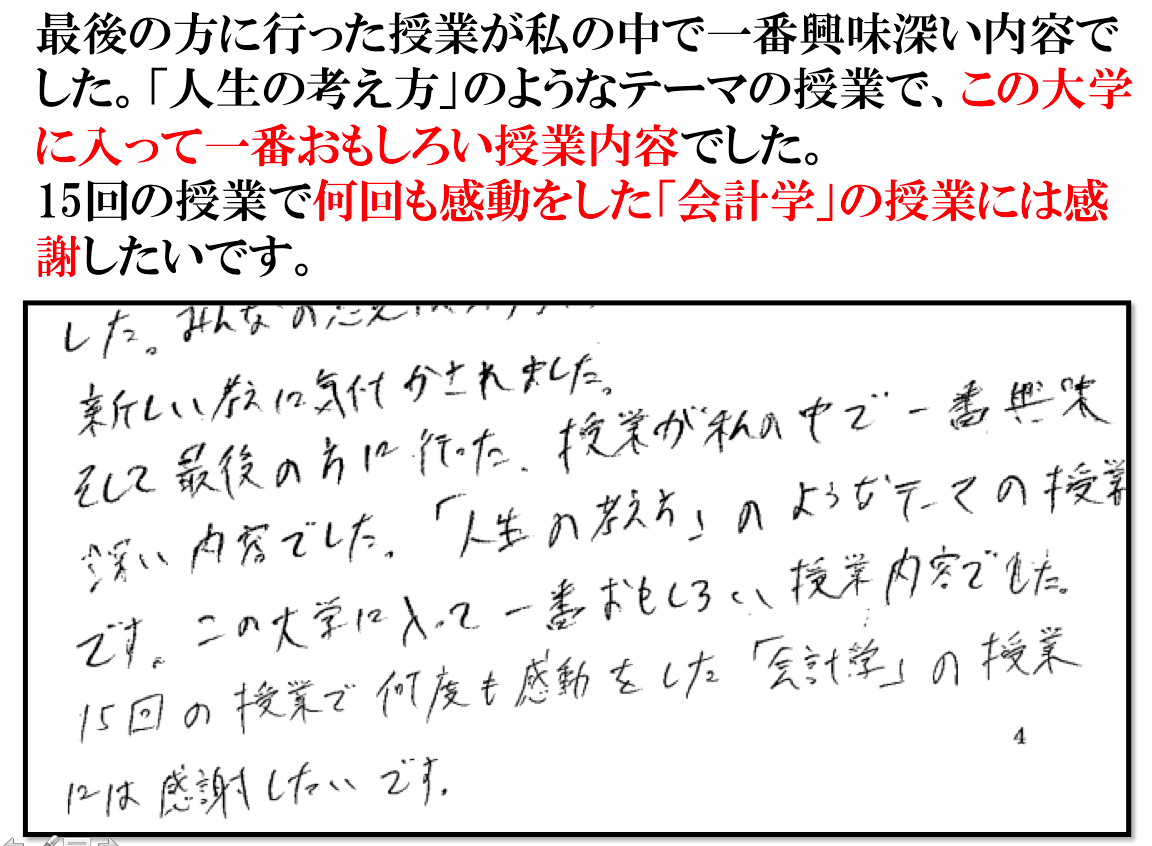 最後の方に行った授業が私の中で一番興味深い内容で
した。「人生の考え方」のようなテーマの授業で、この大学
に入って一番おもしろい授業内容でした。
15回の授業で何回も感動をした「会計学」の授業には感
謝したいです。
した。みんなの意見
新しい考えに気付かされました。
そして最後の方に行った、授業が私の中で一番興味
深い内容でした。「人生の考え方」のようなテーマの授業
です。この大学に入って一番おもしろい授業内容でした。
15回の授業で何度も感動をした「会計学」の授業
4
には感謝したいです。